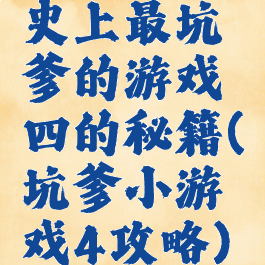 史上最坑
爹的游戏
四的秘籍(
坑爹小游
戏4攻略)